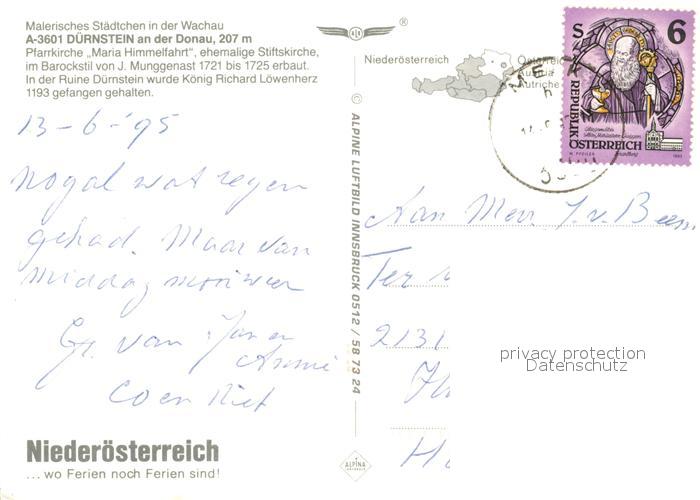 Malerisches Städtchen in der Wachau
A-3601 DÜRNSTEIN an der Donau, 207 m
Pfarrkirche „Maria Himmelfahrt“, ehemalige Stiftskirche,
im Barockstil von J. Munggenast 1721 bis 1725 erbaut.
In der Ruine Dürnstein wurde König Richard Löwenherz
1193 gefangen gehalten.
13-6-'95
Nogal wat regen
gehad. Maar van
middag mooi weer
Gr. van Jan en
Annie
Coen Riet
Niederösterreich
... wo Ferien noch Ferien sind!
© ALPINE LUFTBILD INNSBRUCK 0512 / 58 73 24
ALPINA
®
Niederösterreich
Österreich
Austria
Autriche
S 6
REPUBLIK
ÖSTERREICH
1993
Aan Mevr. J. v. Beem
Ter
2131
privacy protection
Datenschutz